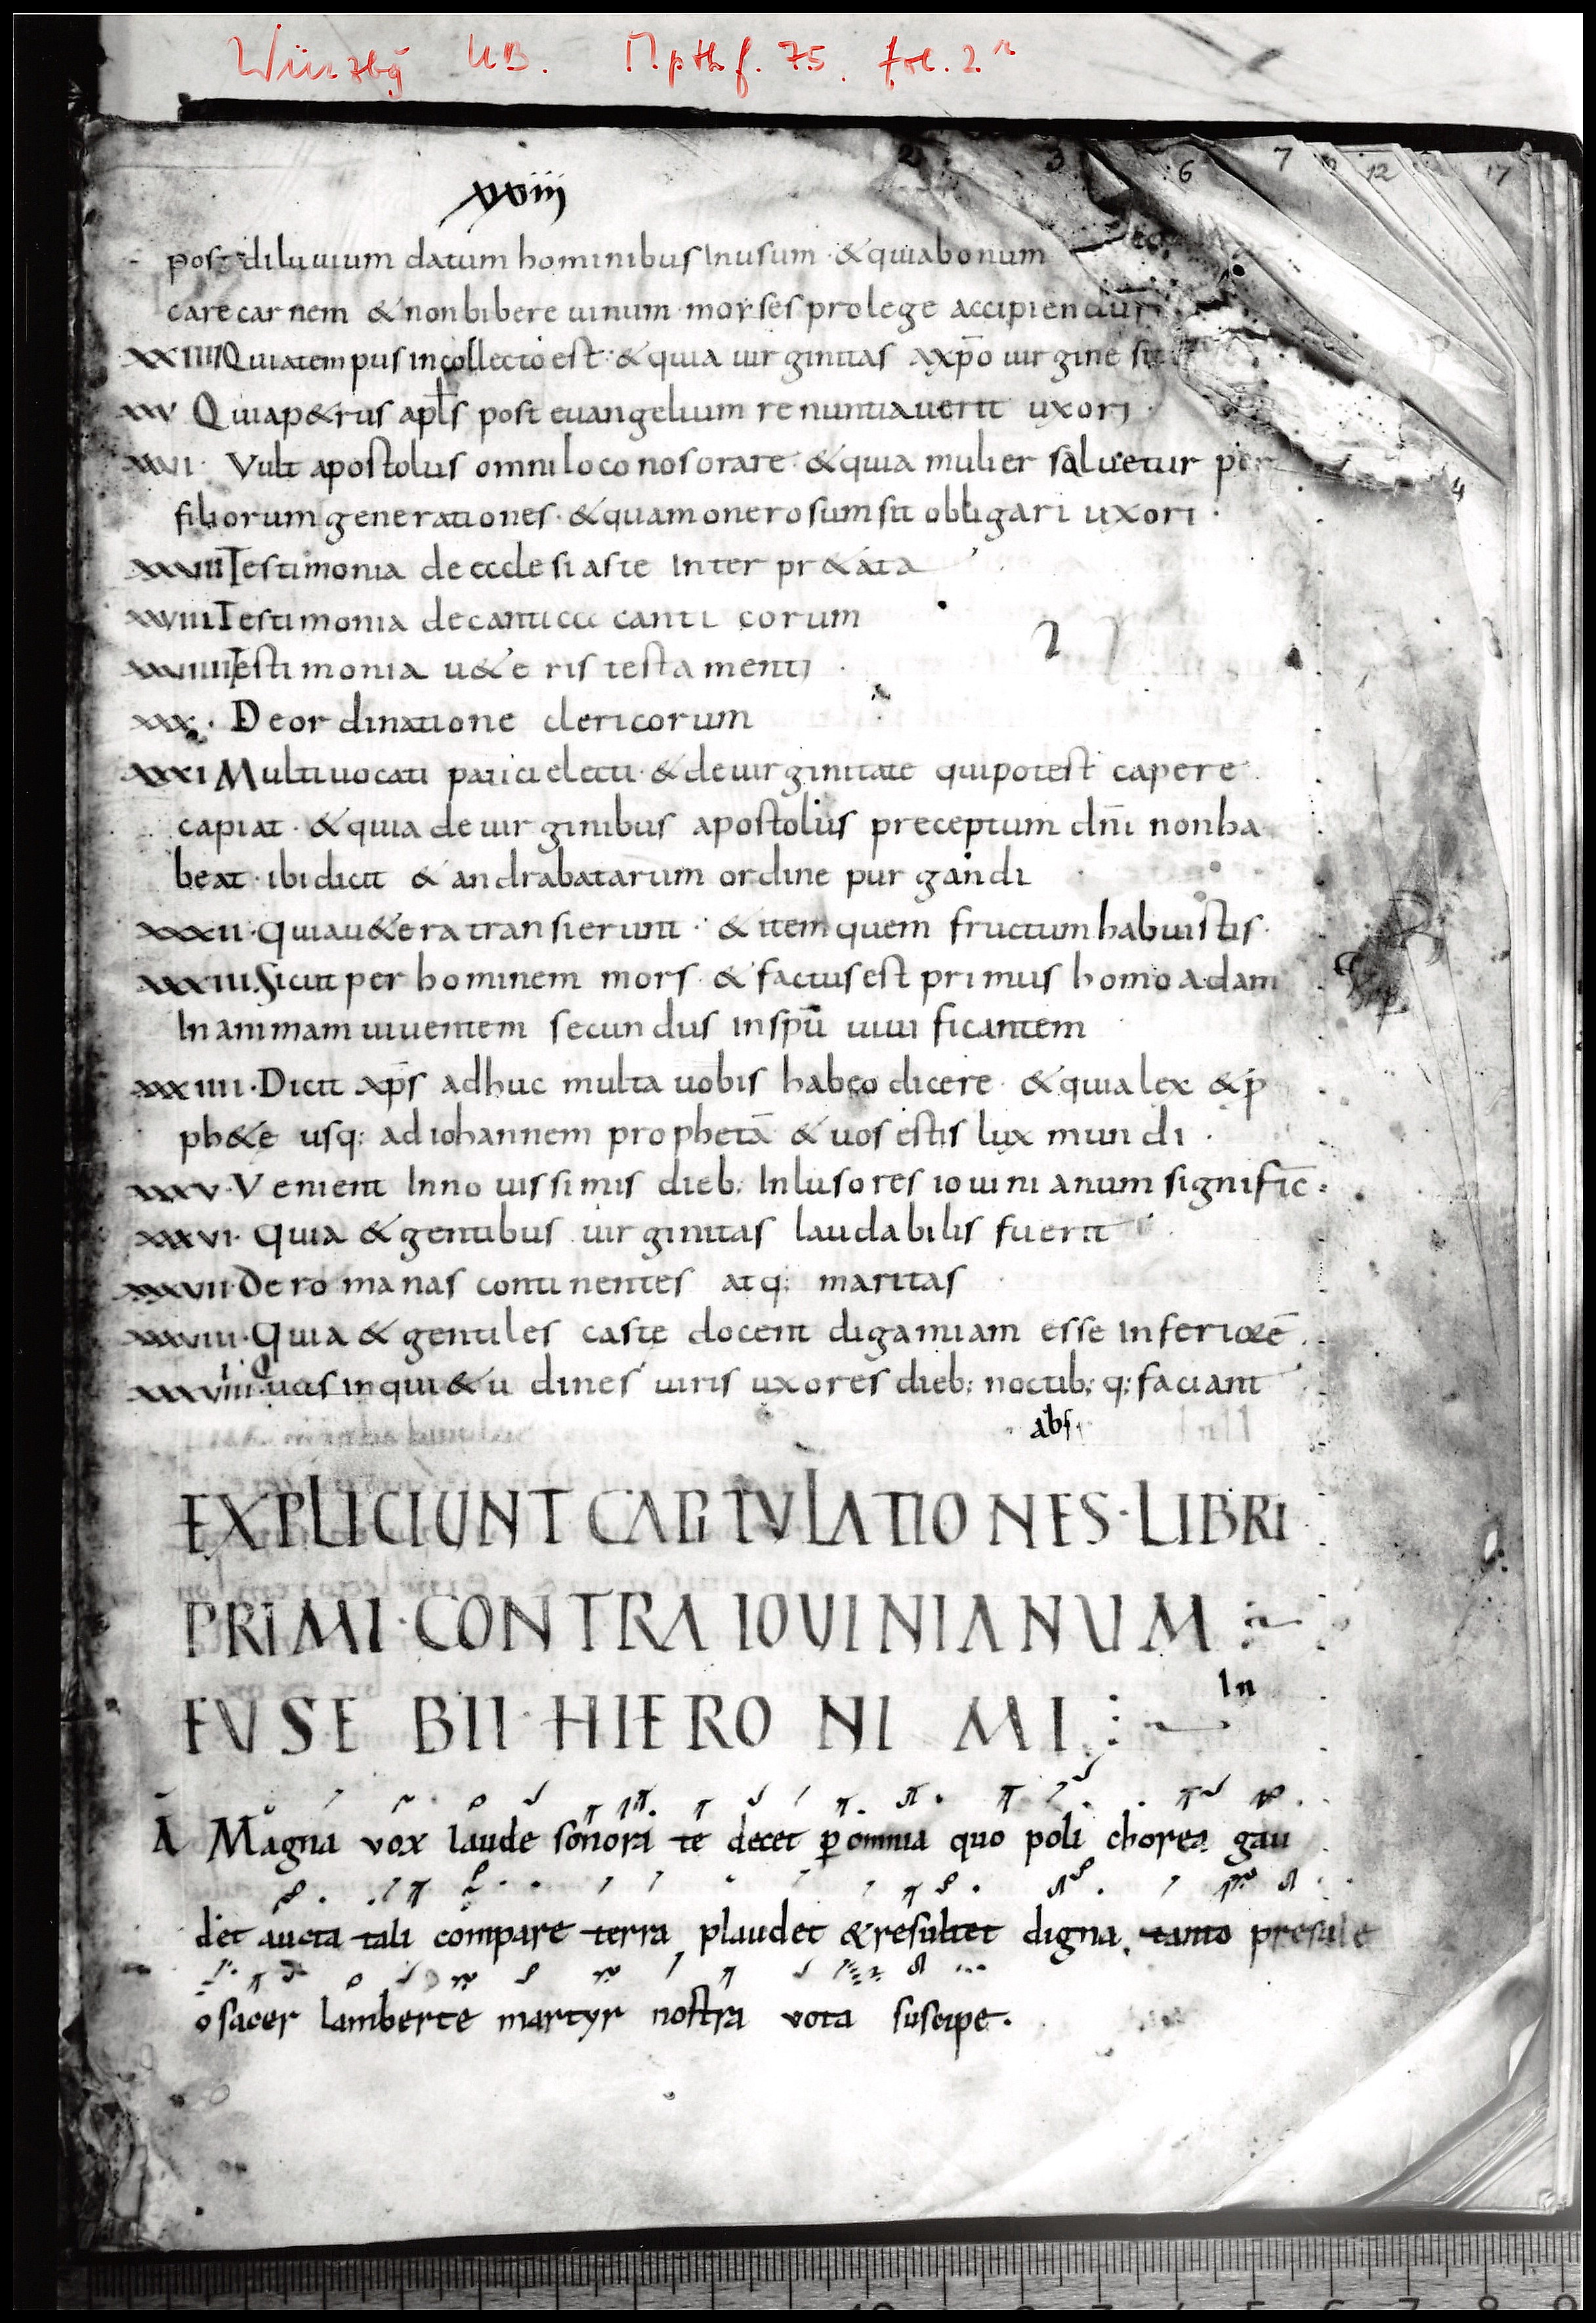 Würzbg UB. M.p.th.f. 75. fol. 2r
2 3 6 7 12 17
xxiii
post diluuium datum hominibus Inusum · &quiabonum
care carnem & nonbibere uinum moyses prolege accipiendur
XXIIII Quiatempus incollectio est · & quia uirginitas axp̄o uirgine sit
XXV Quiap&rus apl̄s post euangelium renuntiauerit uxori ·
XXVI · Vult apostolus omni loco nos orare · &quia mulier saluetur per
4
filiorum generationes · &quamonerosumsit obligari uxori ·
XXVII Testimonia de ecclesiaste Inter pr&ata
XXVIII Testimonia decanticc canticorum
2
XXVIIII Testimonia u&eris testamenti ·
XXX · De ordinatione clericorum
XXXI Multi uocati pauci electi · &deuirginitate quipotest capere ·
capiat · &quia de uirginibus apostolus preceptum dn̄i nonha
beat · ibi dicit & andrabatarum ordine purgandi
XXXII · Quiau&era transierunt · & item quem fructum habuistis ·
XXXIII Sicut per hominem mors · & factus est primus homo adam
In animam uiuentem secundus inspū uiuificantem
XXXIIII · Dicit xp̄s adhuc multa uobis habeo dicere · &quia lex &p
ph&e usq; ad iohannem prophetā & uos estis lux mundi ·
XXXV · Venient Inno uissimis dieb; Inlusores iouinianum signific̄ ·
XXXVI · Quia & gentibus uirginitas laudabilis fuerit
XXXVII · De romanas continentes atq; maritas
XXXVIII · Quia & gentiles caste docent digamiam esse inferiorē ·
XXXVIIII · Quas inqui&udines uiris uxores dieb; noctib; q; faciant
abs
EXPLICIUNT CAPITULATIONES · LIBRI
PRIMI · CONTRA IOUINIANUM
In
EUSEBII · HIERONIMI
A Magna vox laude sonora te decet p omnia quo poli chorea gau
det aucta tali compare terra plaudet &resultet digna tanto presule
o sacer lamberte martyr nostra vota suscipe ·